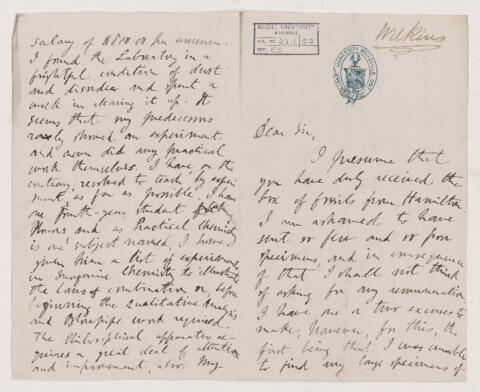 McGILL UNIVERSITY
ARCHIVES
ACC. NO. 2211/52
REF. 55
Wilkins
Dear Sir,
I presume that
you have duly received the
box of fossils from Hamilton
I am ashamed to have
sent so few and so poor
specimens, and in consequence
of that I shall not think
of asking for any remuneration.
I have one or two excuses to
make, however, for this, the
first being that I was unable
to find any large specimens of
salary of $800.00 per annum.
I found the Laboratory in a
frightful condition of dust
and disorder and spent a
week in clearing it up. It
seems that my predecessors
rarely showed an experiment
and never did any practical
work themselves. I have, on the
contrary, resolved to teach by experi-
ment, as far as possible. I have
one fourth-year student taking
Honors and as Practical Chemistry
is one subject named, I have
given him a list of experiments
in Inorganic Chemistry to illustrate
the laws of combination before
beginning the Qualitative Analysis
and Blowpipe work required.
The Philosophical apparatus re-
quires a great deal of attention
and improvement, also. My